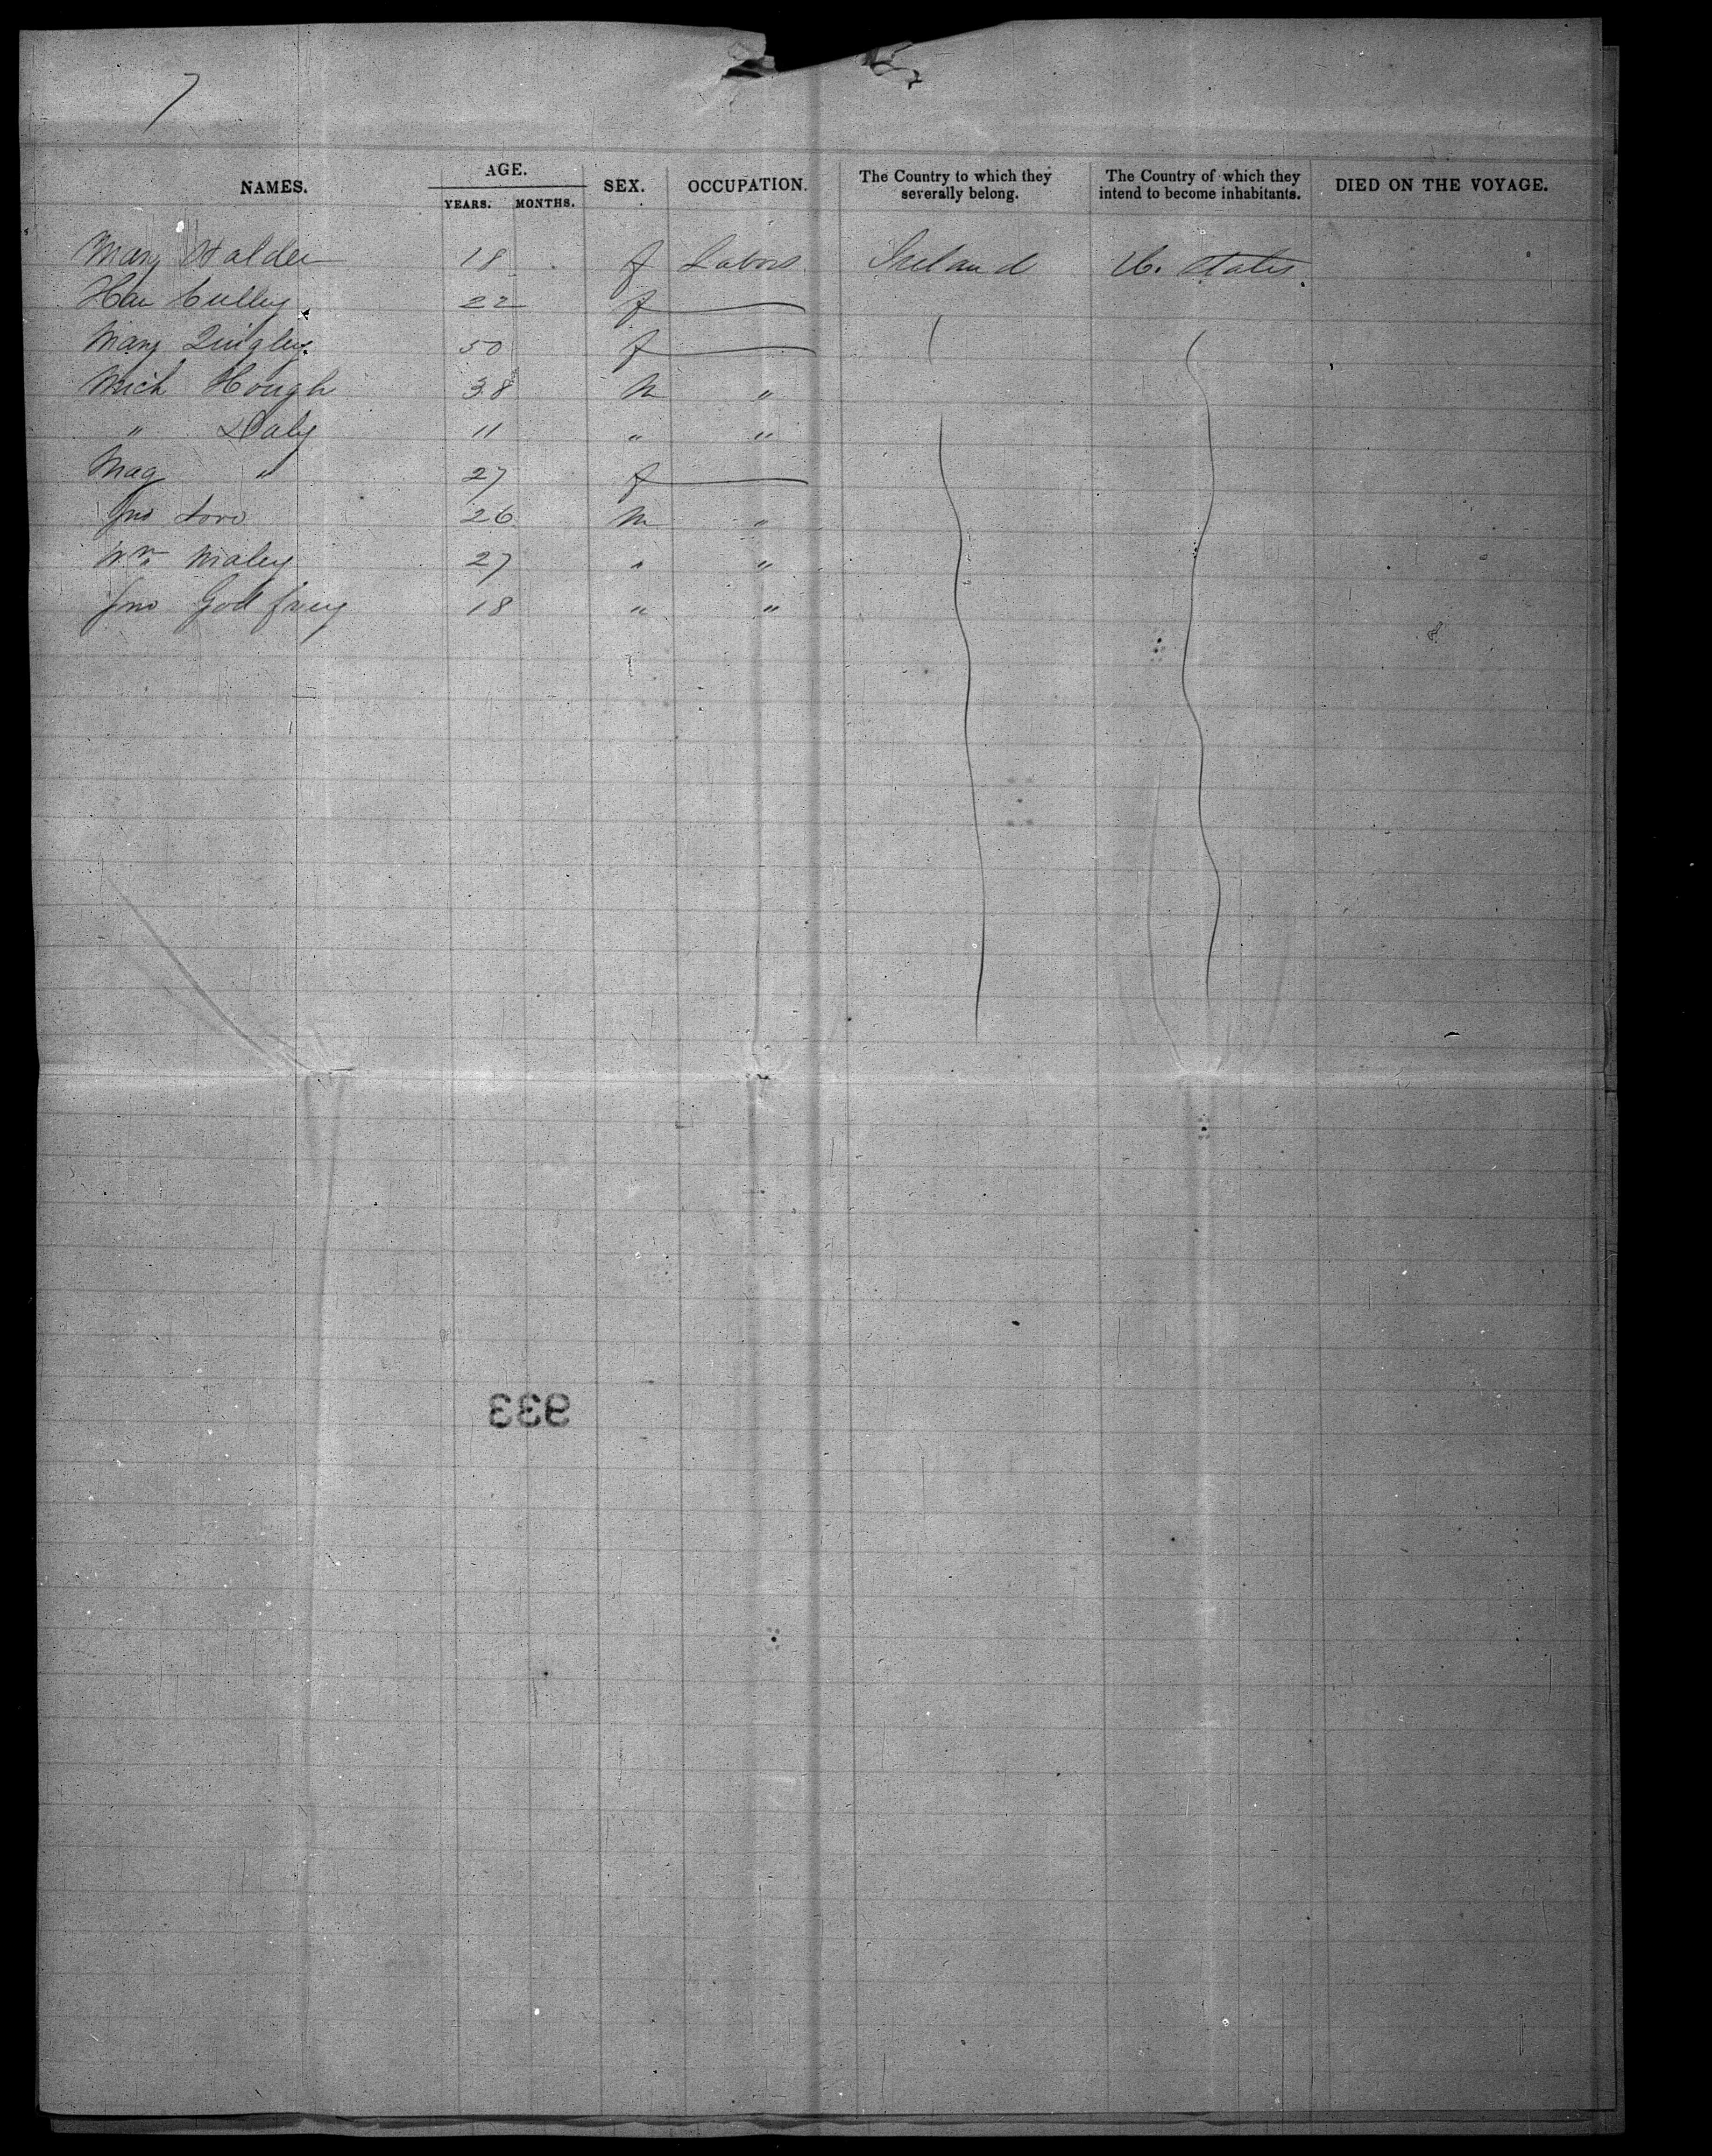 7
NAMES. AGE. SEX. OCCUPATION. The Country to which they severally belong. The Country of which they intend to become inhabitants. DIED ON THE VOYAGE.
YEARS. MONTHS.
Mary Halden 18 f Labors Ireland U. States
Han Culley 22 f
Mary Quigley 50 f
Mich Hough 38 M "
" Daly 11 " "
Mag " 27 f
Jno 26 M "
Wm Maley 27 " "
Jno Godfrey 18 " "
933